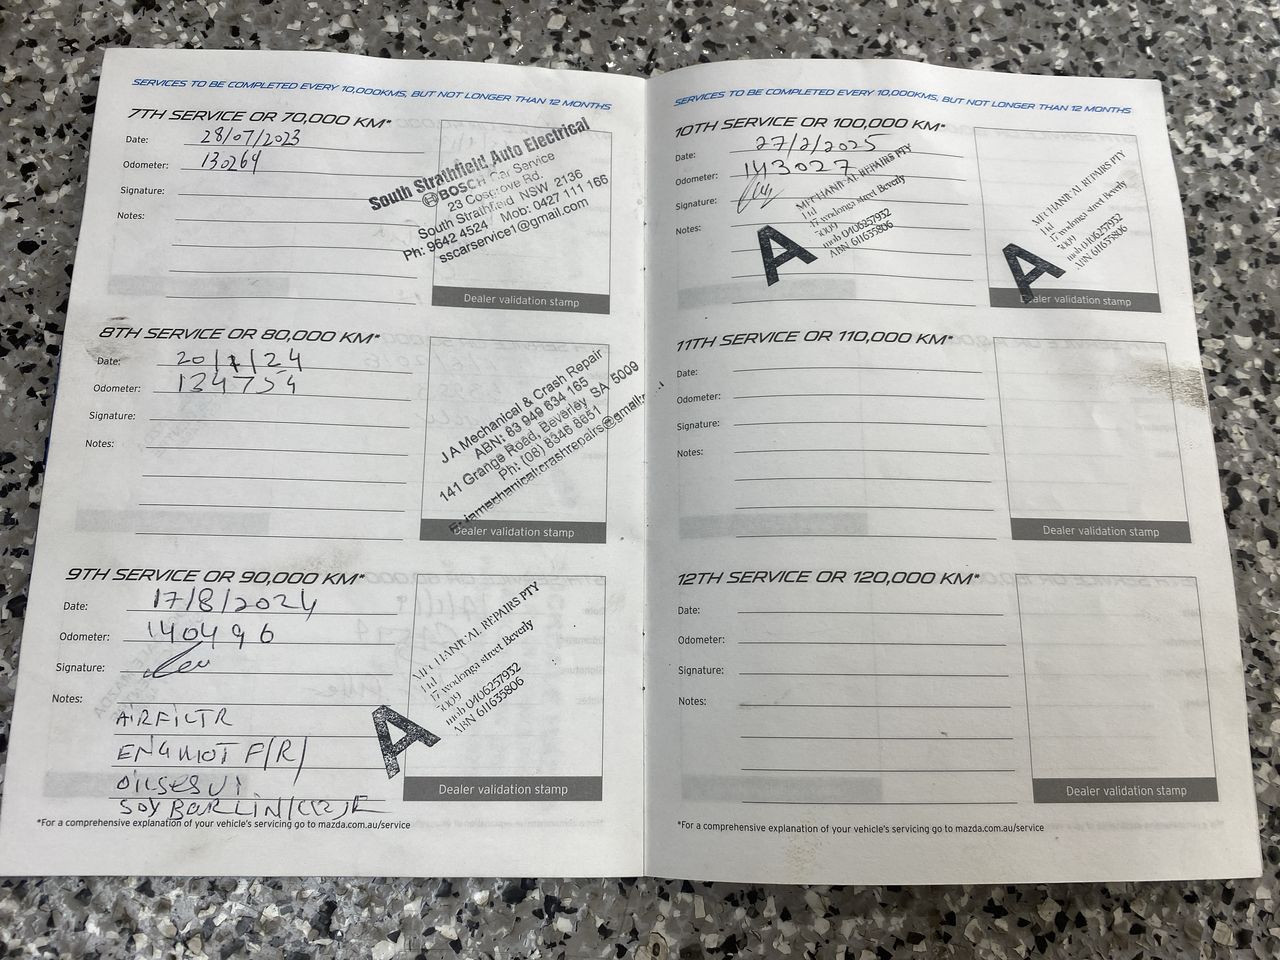 SERVICES TO BE COMPLETED EVERY 10,000KMS, BUT NOT LONGER THAN 12 MONTHS
7TH SERVICE OR 70,000 KM*
Date: 28/07/2023
Odometer: 130269
Signature:
Notes:
South Strathfield Auto Electrical
BOSCH Car Service
23 Cosgrove Rd.
South Strathfield NSW 2136
Ph: 9642 4524 Mob: 0427 111 166
sscarservice1@gmail.com
Dealer validation stamp
8TH SERVICE OR 80,000 KM*
Date: 20/1/24
Odometer: 134754
Signature:
Notes:
J A Mechanical & Crash Repair
ABN: 83 949 634 165
141 Grange Road, Beverley SA 5009
Ph: (08) 8346 8651
E: jamechanical.crashrepairs@gmail
Dealer validation stamp
9TH SERVICE OR 90,000 KM*
Date: 17/8/2024
Odometer: 140496
Signature:
Notes:
AIRFILTR
F/R/
A
MECHANICAL REPAIRS PTY
Ltd
17 wodonga street Beverly
5009
mob 0406257932
ABN 611635806
Dealer validation stamp
*For a comprehensive explanation of your vehicle's servicing go to mazda.com.au/service
SERVICES TO BE COMPLETED EVERY 10,000KMS, BUT NOT LONGER THAN 12 MONTHS
10TH SERVICE OR 100,000 KM*
Date: 27/2/2025
Odometer: 143027
Signature:
Notes:
A
MECHANICAL REPAIRS PTY
Ltd
17 wodonga street Beverly
5009
mob 0406257932
ABN 611635806
A
MECHANICAL REPAIRS PTY
Ltd
17 wodonga street Beverly
5009
mob 0406257932
ABN 611635806
Dealer validation stamp
11TH SERVICE OR 110,000 KM*
Date:
Odometer:
Signature:
Notes:
Dealer validation stamp
12TH SERVICE OR 120,000 KM*
Date:
Odometer:
Signature:
Notes:
Dealer validation stamp
*For a comprehensive explanation of your vehicle's servicing go to mazda.com.au/service